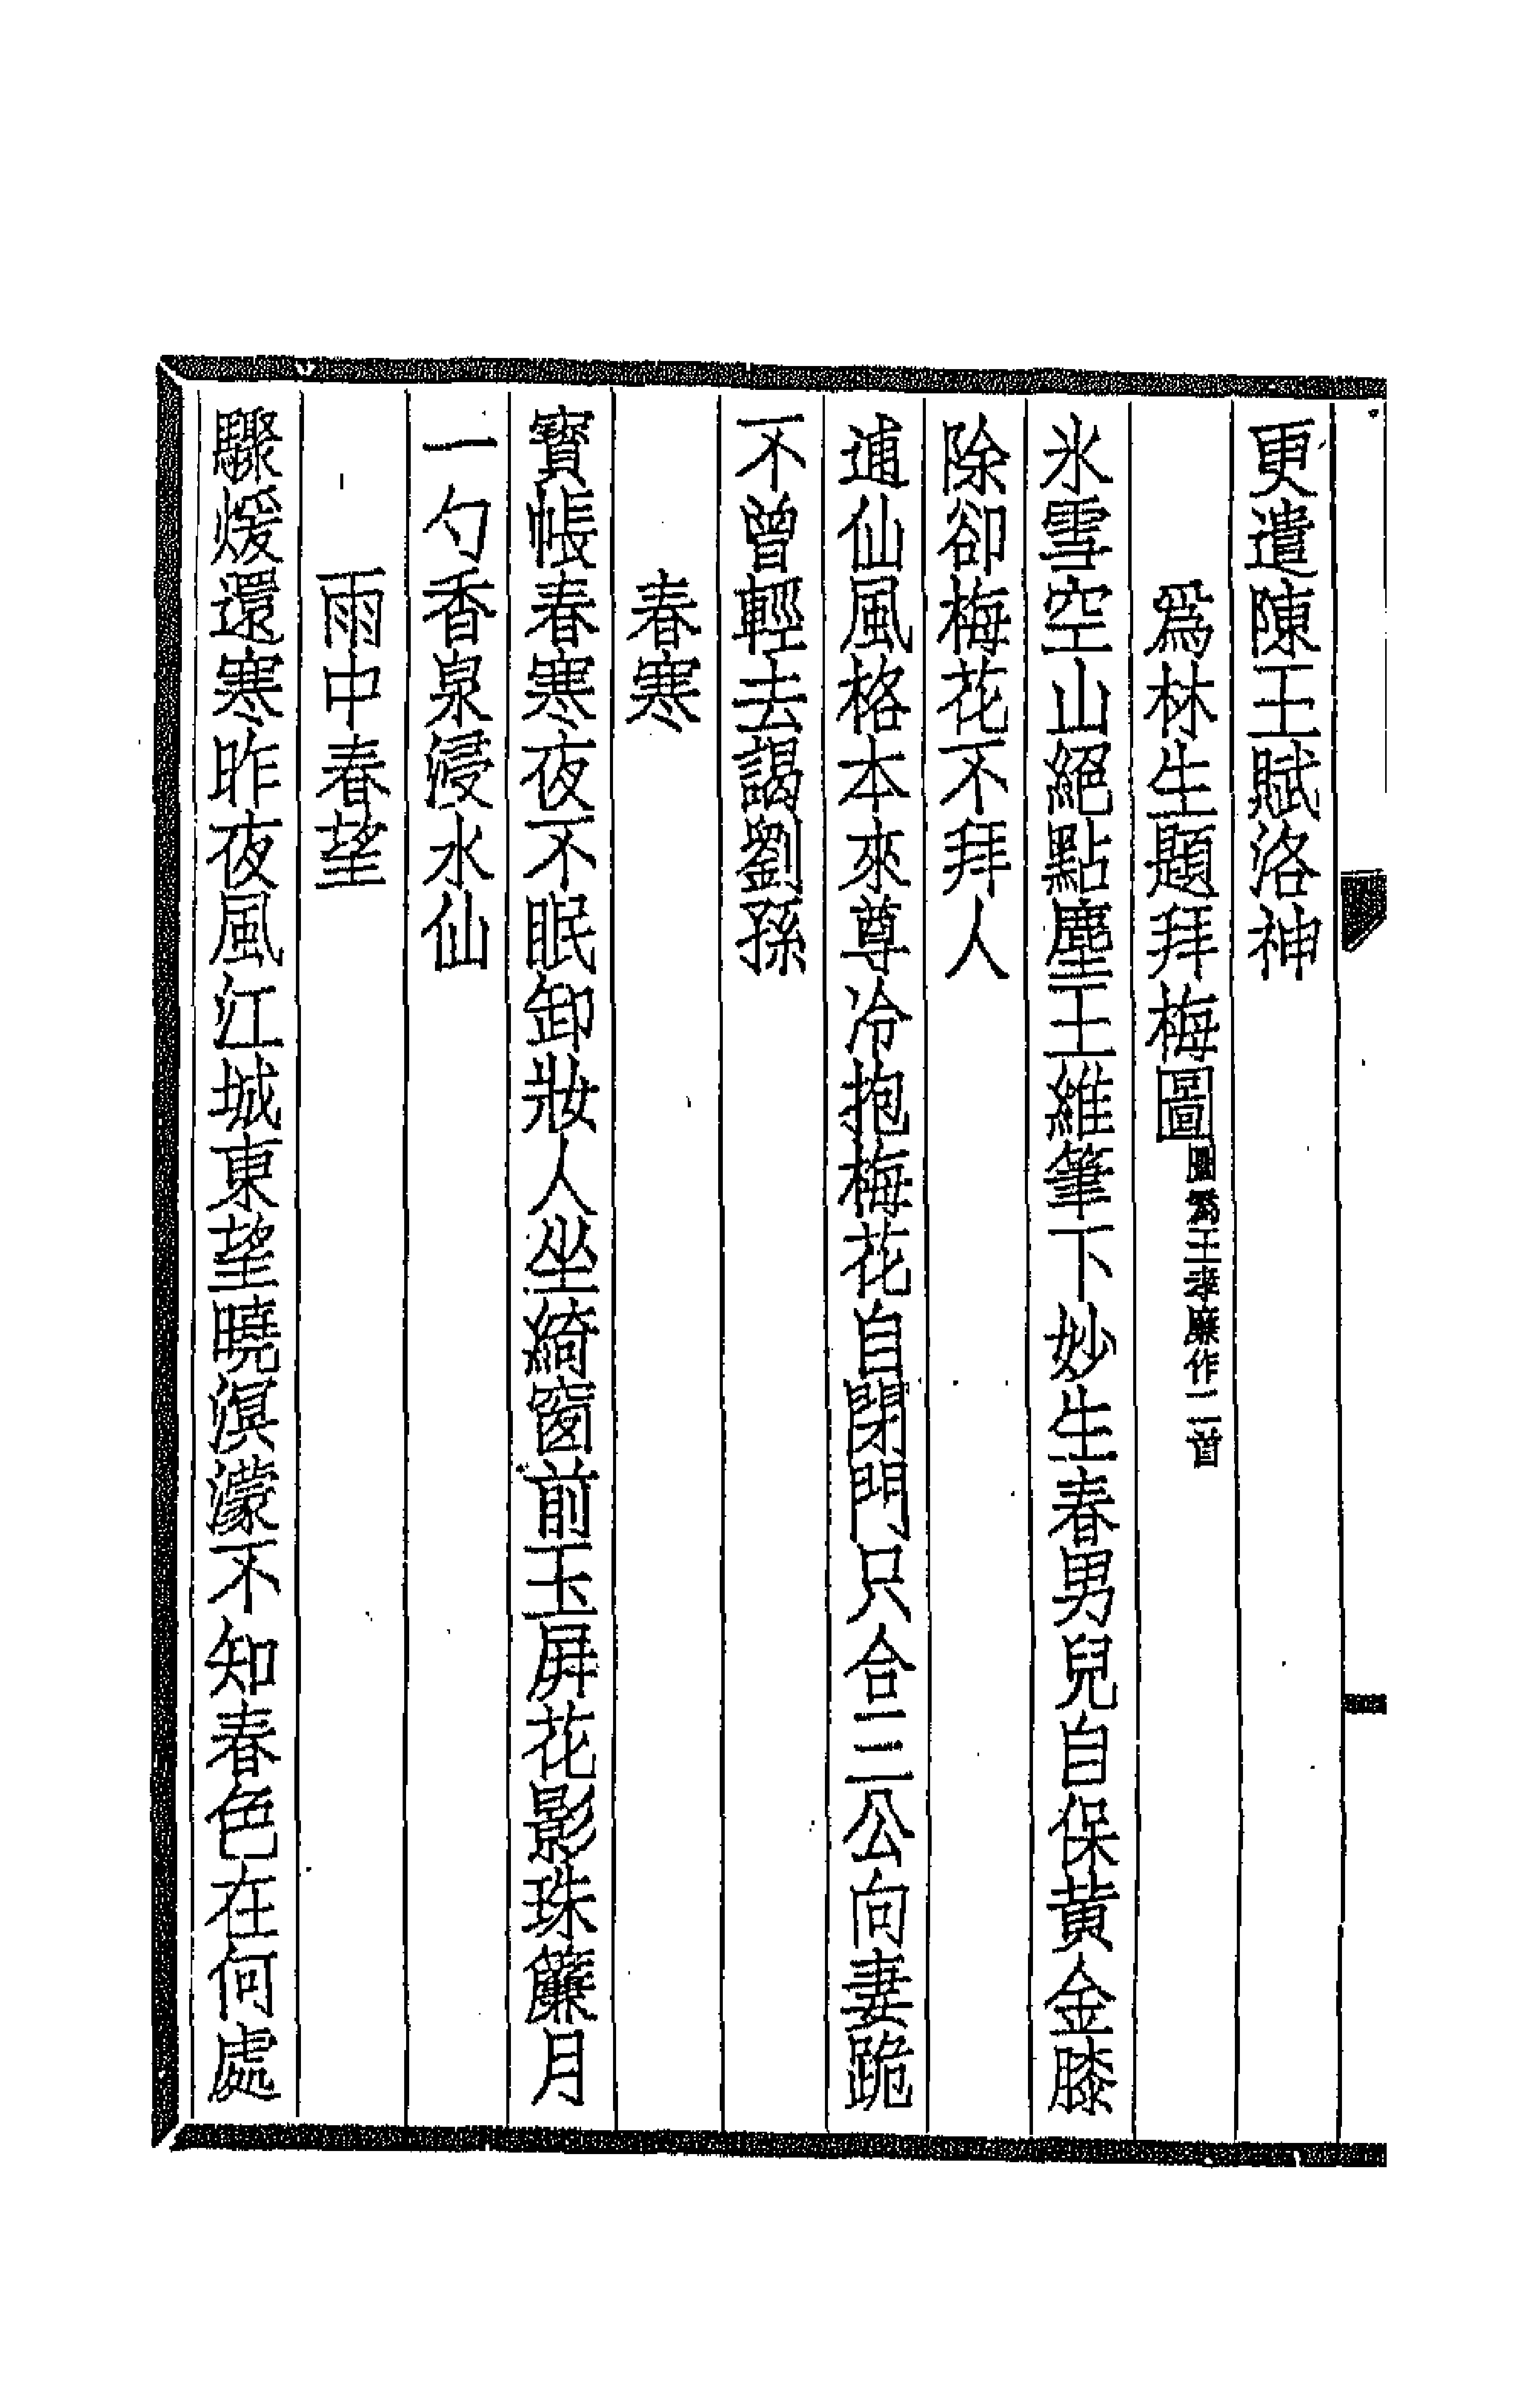 更遣陳王賦洛神
爲林生題拜梅圖圖爲王孝廉作二首
氷雪空山絕點塵王維筆下妙生春男兒自保黃金膝
除卻梅花不拜人
逋仙風格本來尊冷抱梅花自閉門只合三公向妻跪
不曾輕去謁劉孫
春寒
寶帳春寒夜不眠卸妝人坐綺窗前玉屛花影珠簾月
一勺香泉浸水仙
雨中春望
驟煖還寒昨夜風江城東望曉溟濛不知春色在何處